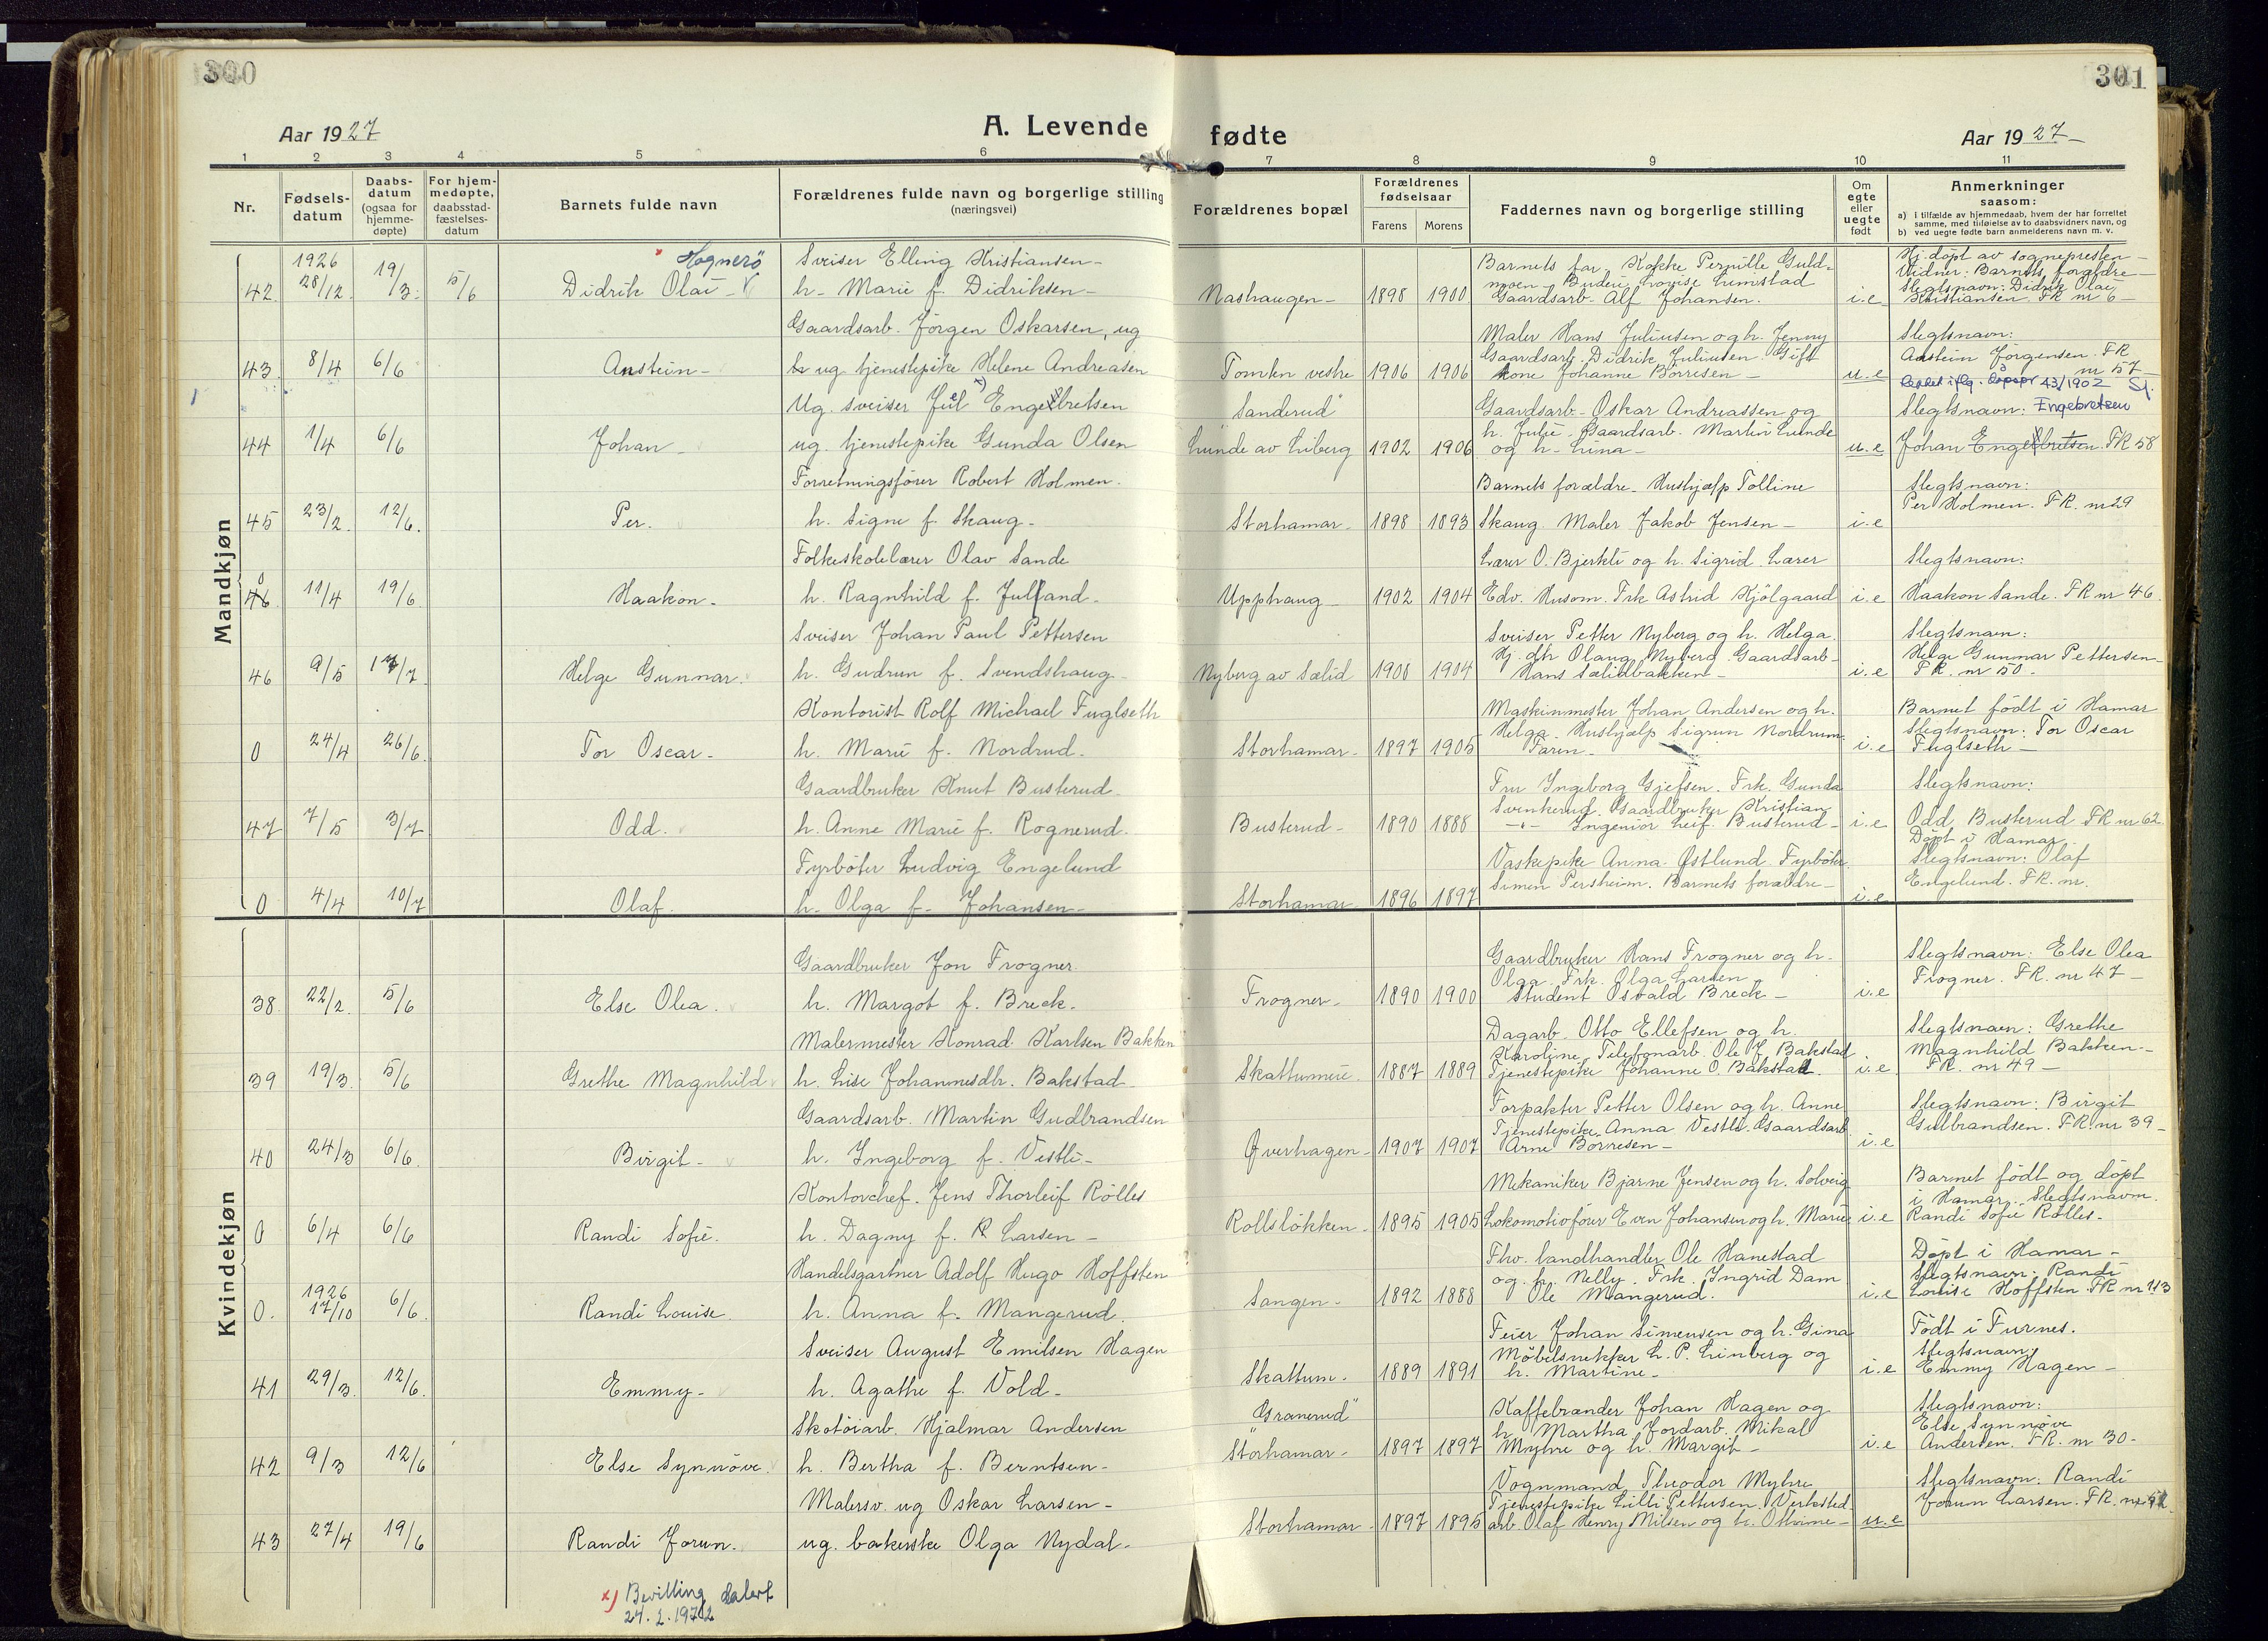 300
301
Aar 1927
A. Levende fødte
Aar 1927
1 2 3 4 5 6 7 8 9 10 11
Nr.
Fødsels-
datum
Daabs-
datum
(ogsaa for
hjemme-
døpte)
For hjem-
medøpte,
daabsstad-
fæstelses-
datum
Barnets fulde navn
Forældrenes fulde navn og borgerlige stilling
(næringsvei)
Forældrenes bopæl
Forældrenes
fødselsaar
Farens Morens
Faddernes navn og borgerlige stilling
Om
egte
eller
uegte
født
Anmerkninger
saasom:
a) i tilfælde av hjemmedaab, hvem der har forrettet
samme, med tilføielse av to daabsvidners navn, og
b) ved uegte fødte barn anmelderens navn m. v.
Mandkjøn
42. 1926 28/12. 19/3. 5/6
Hognerö
Didrik Olai
Sveiser Elling Kristiansen
h. Marie f. Didriksen
Nashaugen 1898 1900
Barnets far. Kokke Pernille Guld-
mosen. Budeie Lovise Lumstad
Gaardsarb. Alf Johansen.
i.e
Hj. döpt av sognepresten
Vidner: Barnets forældre
Slegtsnavn: Didrik Olai
Kristiansen FR nr 6
43. 8/4 6/6
Anstein
Gaardsarb. Jörgen Oskarsen, ug
ug tjenestepike Helene Andreasen
Tomten vestre 1906 1906
Maler Hans Juliusen og h. Jenny
Gaardsarb. Didrik Juliusen. Gift
kone Johanne Börresen
u.e
Slegtsnavn:
Anstein Jörgensen. FR
nr 57
44 1/4 6/6
Johan
Ug. sveiser Juel Engebretsen
ug. tjenestepike Gunda Olsen
Sanderud"
Lunde av Liberg 1902 1906
Gaardsarb. Oskar Andreassen og
h. Julie. Gaardsarb. Martin Lunde
og h. Lina
u.e
43/1902
Slegtsnavn: Engebretsen
Johan Engebretsen. FR 58
45 23/2. 12/6.
Per.
Forretningsförer Robert Holmen.
h. Signe f. Skaug.
Storhamar 1898 1893
Barnets forældre. Hushjælp Tolline
Skaug. Maler Jakob Jensen
i.e
Slegtsnavn:
Per Holmen. FR. nr 29
0 46 11/4 19/6.
Haakon.
Folkeskolelærer Olav Sande
h. Ragnhild f. Julland.
Upphaug 1902 1904
Lærer O. Bjerkli og h. Sigrid. Lærer
Edv. Husom. Frk Astrid Kjölgaard
i.e
Slegtsnavn:
Haakon Sande. FR nr 46.
46 9/5 17/7
Helge Gunnar.
Sveiser Johan Paul Pettersen
h. Gudrun f. Svendshaug
Nyberg av Sælid 1900 1904
Sveiser Petter Nyberg og h. Helga.
Hj. dtr Olaug Nyberg. Gaardsarb
Hans Sælidbakken
i.e
Slegtsnavn:
Helge Gunnar Pettersen
FR. nr 50.
0 24/4 26/6.
Tor Oscar
Kontorist Rolf Michael Fuglseth
h. Marie f. Nordrud.
Storhamar 1897 1905
Maskinmester Johan Andersen og h.
Helga. Hushjælp Sigrun Nordrum.
Faren
i.e
Barnet födt i Hamar
Slegtsnavn: Tor Oscar
Fuglseth
47 7/5 3/7
Odd.
Gaardbruker Knut Busterud
h. Anne Marie f. Rognerud.
Busterud 1890 1888
Fru Ingeborg Gjefsen. Frk. Gunda
Svenkerud. Gaardbruker Kristian
Ingeniör Leif Busterud
i.e
Slegtsnavn:
Odd Busterud FR nr 62.
0 4/4 10/7
Olaf.
Fyrböter Ludvig Engelund
h. Olga f. Johansen
Storhamar 1896 1897
Vaskepike Anna Östlund. Fyrböter
Simen Persheim. Barnets forældre
i.e
Döpt i Hamar.
Slegtsnavn: Olaf
Engelund. FR. nr.
Kvindekjøn
38. 22/2. 5/6
Else Olea.
Gaardbruker Jon Frogner
h. Margot f. Breck.
Frogner 1890 1900
Gaardbruker Hans Frogner og h.
Olga. Frk. Olga Larsen
Student Osvald Breck
i.e
Slegtsnavn: Else Olea
Frogner. FR. nr 47
39 19/3. 5/6
Grethe Magnhild
Malermester Konrad Karlsen Bakken
h. Lise Johannesdtr. Bakstad
Skattumeie. 1887 1889
Dagarb. Otto Ellefsen og h.
Karoline. Telefonarb. Ole J. Bakstad
Tjenestepike Johanne O. Bakstad.
i.e
Slegtsnavn: Grethe
Magnhild Bakken
FR. nr 49
40 24/3 6/6.
Birgit
Gaardsarb. Martin Gudbrandsen
h. Ingeborg f. Vestli
Överhagen 1907 1907
Forpakter Petter Olsen og h. Anne
Tjenestepike Anna Vestli. Gaardsarb
Arne Börresen
i.e
Slegtsnavn: Birgit
Gulbrandsen. FR. nr 39
0 6/4 6/6
Randi Sofie.
Kontorchef. Jens Thorleif Rölles
h. Dagny f. R Larsen
Rollslökken 1895 1905
Mekaniker Bjarne Jensen og h. Solveig
Lokomotivförer Even Johansen og h. Marie
i.e
Barnet födt og döpt
i Hamar. Slegtsnavn.
Randi Sofie Rölles.
0. 1926 17/10 6/6.
Randi Louise.
Handelsgartner Adolf Hugo Hoffsten
h. Anna f. Mangerud.
Sangen 1892 1888
Fhv. landhandler Ole Hanestad
og h. Nelly. Frk. Ingrid Dam
Ole Mangerud.
i.e
Döpt i Hamar
Slegtsnavn: Randi
Louise Hoffsten FR nr 113
41 29/3. 12/6.
Emmy
Sveiser August Emilsen Hagen
h. Agathe f. Vold
Skattum. 1889 1891
Feier Johan Simensen og h. Gina
Möbelsnekker L. P. Linberg og
h. Martine
i.e
Födt i Furnes.
Slegtsnavn:
Emmy Hagen
42 9/3 12/6
Else Synnöve.
Skotöiarb. Hjalmar Andersen
h. Bertha f. Berntsen
"Granerud"
Storhamar 1897 1897
Kaffebrænder Johan Hagen og
h. Martha. Jordarb. Mikal
Myhre og h. Margit
i.e
Slegtsnavn:
Else Synnöve
Andersen. FR. nr 30
43 27/4 19/6
Randi Jorun.
Malersv. ug Oskar Larsen
ug. bakerske Olga Nydal.
Storhamar 1897 1895
Vognmand Theodor Myhre
Tjenestepike Lilli Pettersen. Verksted-
arb. Olaf Henry Nilsen og h. Othine
u.e
Slegtsnavn: Randi
Jorun Larsen. FR. nr
x) Bevilling datert
24.2.1972